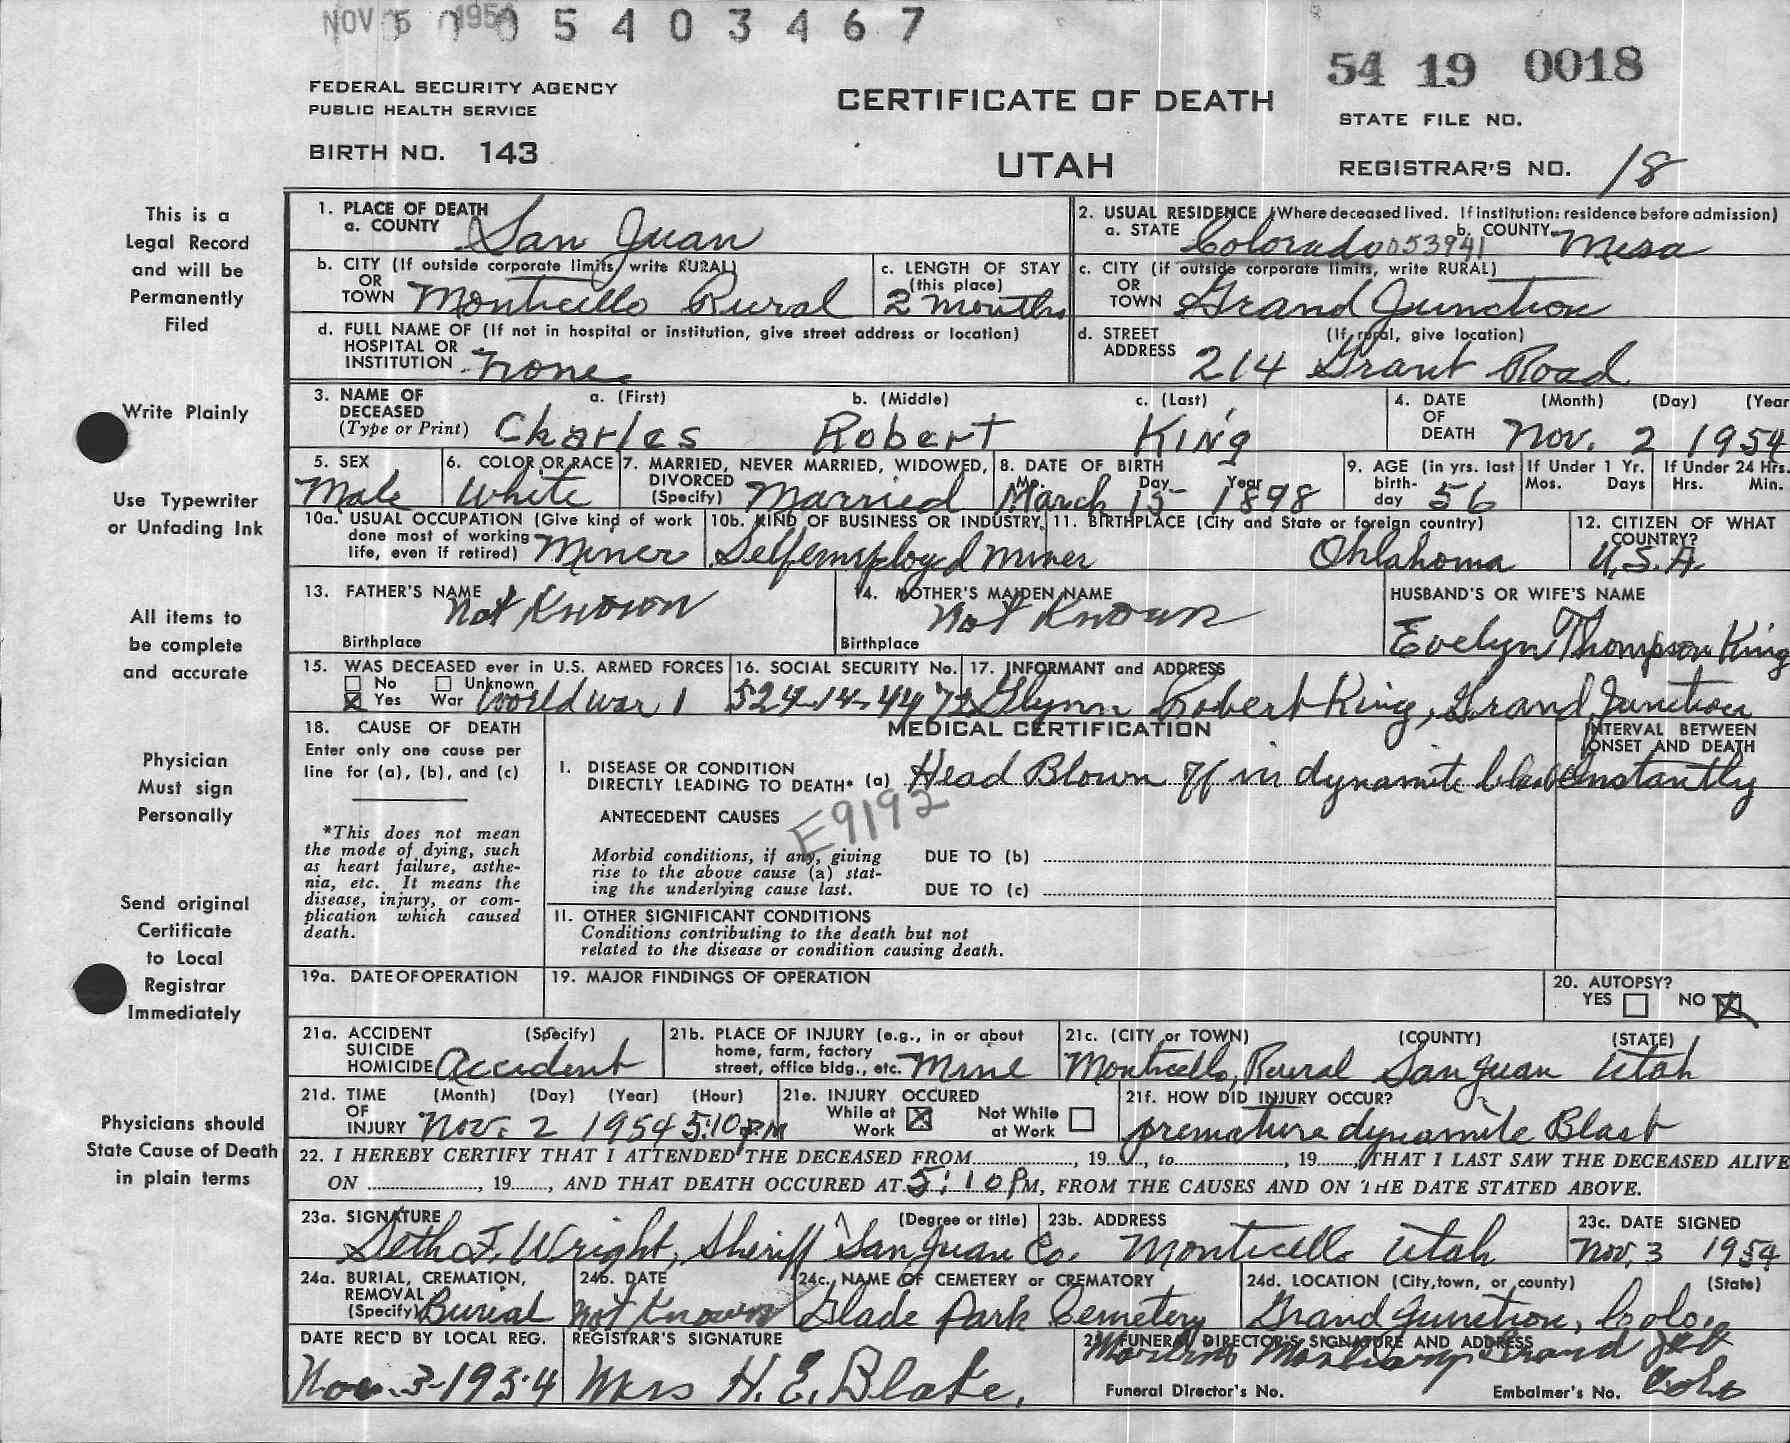 NOV 5 1954
0 0 5 4 0 3 4 6 7
54 19 0018
FEDERAL SECURITY AGENCY
PUBLIC HEALTH SERVICE
CERTIFICATE OF DEATH
STATE FILE NO.
BIRTH NO. 143
UTAH
REGISTRAR'S NO. 18
This is a
Legal Record
and will be
Permanently
Filed
Write Plainly
Use Typewriter
or Unfading Ink
All items to
be complete
and accurate
Physician
Must sign
Personally
Send original
Certificate
to Local
Registrar
Immediately
Physicians should
State Cause of Death
in plain terms
1. PLACE OF DEATH
a. COUNTY San Juan
2. USUAL RESIDENCE (Where deceased lived. If institution: residence before admission)
a. STATE Colorado 053941 b. COUNTY Mesa
b. CITY (If outside corporate limits, write RURAL)
OR
TOWN Monticello Rural
c. LENGTH OF STAY
(this place)
2 months
c. CITY (if outside corporate limits, write RURAL)
OR
TOWN Grand Junction
d. FULL NAME OF (If not in hospital or institution, give street address or location)
HOSPITAL OR
INSTITUTION none
d. STREET (If rural, give location)
ADDRESS 214 Grant Road
3. NAME OF DECEASED (Type or Print)
a. (First) b. (Middle) c. (Last)
Charles Robert King
4. DATE OF DEATH (Month) (Day) (Year
Nov. 2 1954
5. SEX
Male
6. COLOR OR RACE
White
7. MARRIED, NEVER MARRIED, WIDOWED,
DIVORCED
(Specify) Married
8. DATE OF BIRTH
Mo. Day Year
March 15 1898
9. AGE (in yrs. last
birth-
day 56
If Under 1 Yr.
Mos. Days
If Under 24 Hrs.
Hrs. Min.
10a. USUAL OCCUPATION (Give kind of work
done most of working
life, even if retired) Miner
10b. KIND OF BUSINESS OR INDUSTRY
Selfemployed miner
11. BIRTHPLACE (City and State or foreign country)
Ohlahoma
12. CITIZEN OF WHAT
COUNTRY?
U.S.A.
13. FATHER'S NAME
Not Known
Birthplace
14. MOTHER'S MAIDEN NAME
Not Known
Birthplace
HUSBAND'S OR WIFE'S NAME
Evelyn Thompson King
15. WAS DECEASED ever in U.S. ARMED FORCES
No Unknown
Yes War World war 1
16. SOCIAL SECURITY No.
17. INFORMANT and ADDRESS
Glynn Robert King, Grand Junction
18. CAUSE OF DEATH
Enter only one cause per
line for (a), (b), and (c)
*This does not mean
the mode of dying, such
as heart failure, asthe-
nia, etc. It means the
disease, injury, or com-
plication which caused
death.
MEDICAL CERTIFICATION
INTERVAL BETWEEN
ONSET AND DEATH
I. DISEASE OR CONDITION
DIRECTLY LEADING TO DEATH* (a) Head Blown off in dynamite blast Instantly
ANTECEDENT CAUSES
E9192
Morbid conditions, if any, giving
rise to the above cause (a) stat-
ing the underlying cause last.
DUE TO (b)
DUE TO (c)
II. OTHER SIGNIFICANT CONDITIONS
Conditions contributing to the death but not
related to the disease or condition causing death.
19a. DATE OF OPERATION
19. MAJOR FINDINGS OF OPERATION
20. AUTOPSY?
YES NO
21a. ACCIDENT (Specify)
SUICIDE
HOMICIDE Accident
21b. PLACE OF INJURY (e.g., in or about
home, farm, factory
street, office bldg., etc. Mine
21c. (CITY or TOWN) (COUNTY) (STATE)
Monticello, Rural San Juan Utah
21d. TIME (Month) (Day) (Year) (Hour)
OF
INJURY Nov. 2 1954 5:10 P.M
21e. INJURY OCCURED
While at Work Not While at Work
21f. HOW DID INJURY OCCUR?
premature dynamite Blast
22. I HEREBY CERTIFY THAT I ATTENDED THE DECEASED FROM, 19, to, 19, THAT I LAST SAW THE DECEASED ALIVE
ON, 19, AND THAT DEATH OCCURED AT 5:10 P M, FROM THE CAUSES AND ON THE DATE STATED ABOVE.
23a. SIGNATURE (Degree or title)
Seth F. Wright, Sheriff San Juan Co.
23b. ADDRESS
Monticello Utah
23c. DATE SIGNED
Nov. 3 1954
24a. BURIAL, CREMATION,
REMOVAL
(Specify) Burial
24b. DATE
Not Known
24c. NAME OF CEMETERY or CREMATORY
Glade Park Cemetery
24d. LOCATION (City, town, or county) (State)
Grand Junction, Colo.
DATE REC'D BY LOCAL REG.
Nov. 3-1954
REGISTRAR'S SIGNATURE
Mrs H. E. Blake.
FUNERAL DIRECTOR'S SIGNATURE AND ADDRESS
Mortuary Grand Jct
Colo
Funeral Director's No. Embalmer's No.